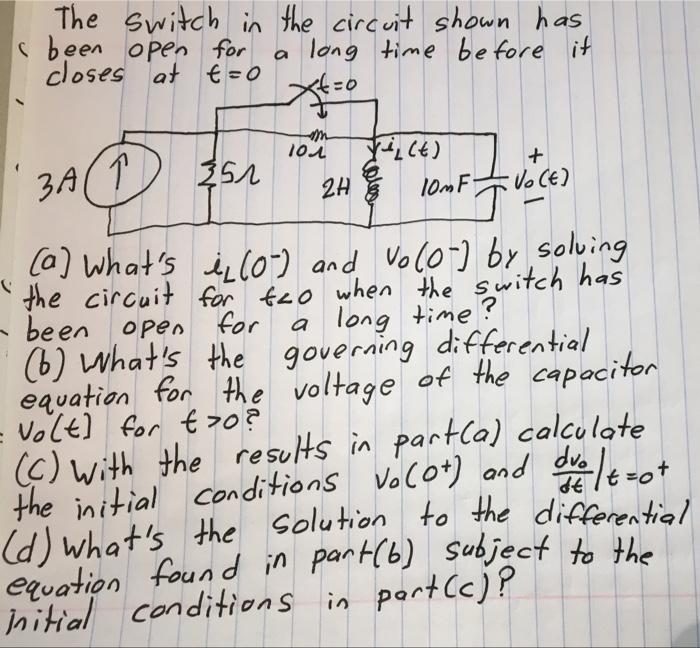 The switch in the circuit shown has
been open for a long time before it
closes at t=0
t=0
10Ω
iL(t)
+
3A
5Ω
2H
10mF
Vo(t)
−
(a) What's iL(0⁻) and Vo(0⁻) by solving
the circuit for t<0 when the switch has
been open for a long time?
(b) What's the governing differential
equation for the voltage of the capacitor
Vo(t) for t>0?
(c) With the results in part(a) calculate
the initial conditions Vo(0⁺) and dVo/dt|t=0⁺
(d) What's the solution to the differential
equation found in part(b) subject to the
initial conditions in part(c)?